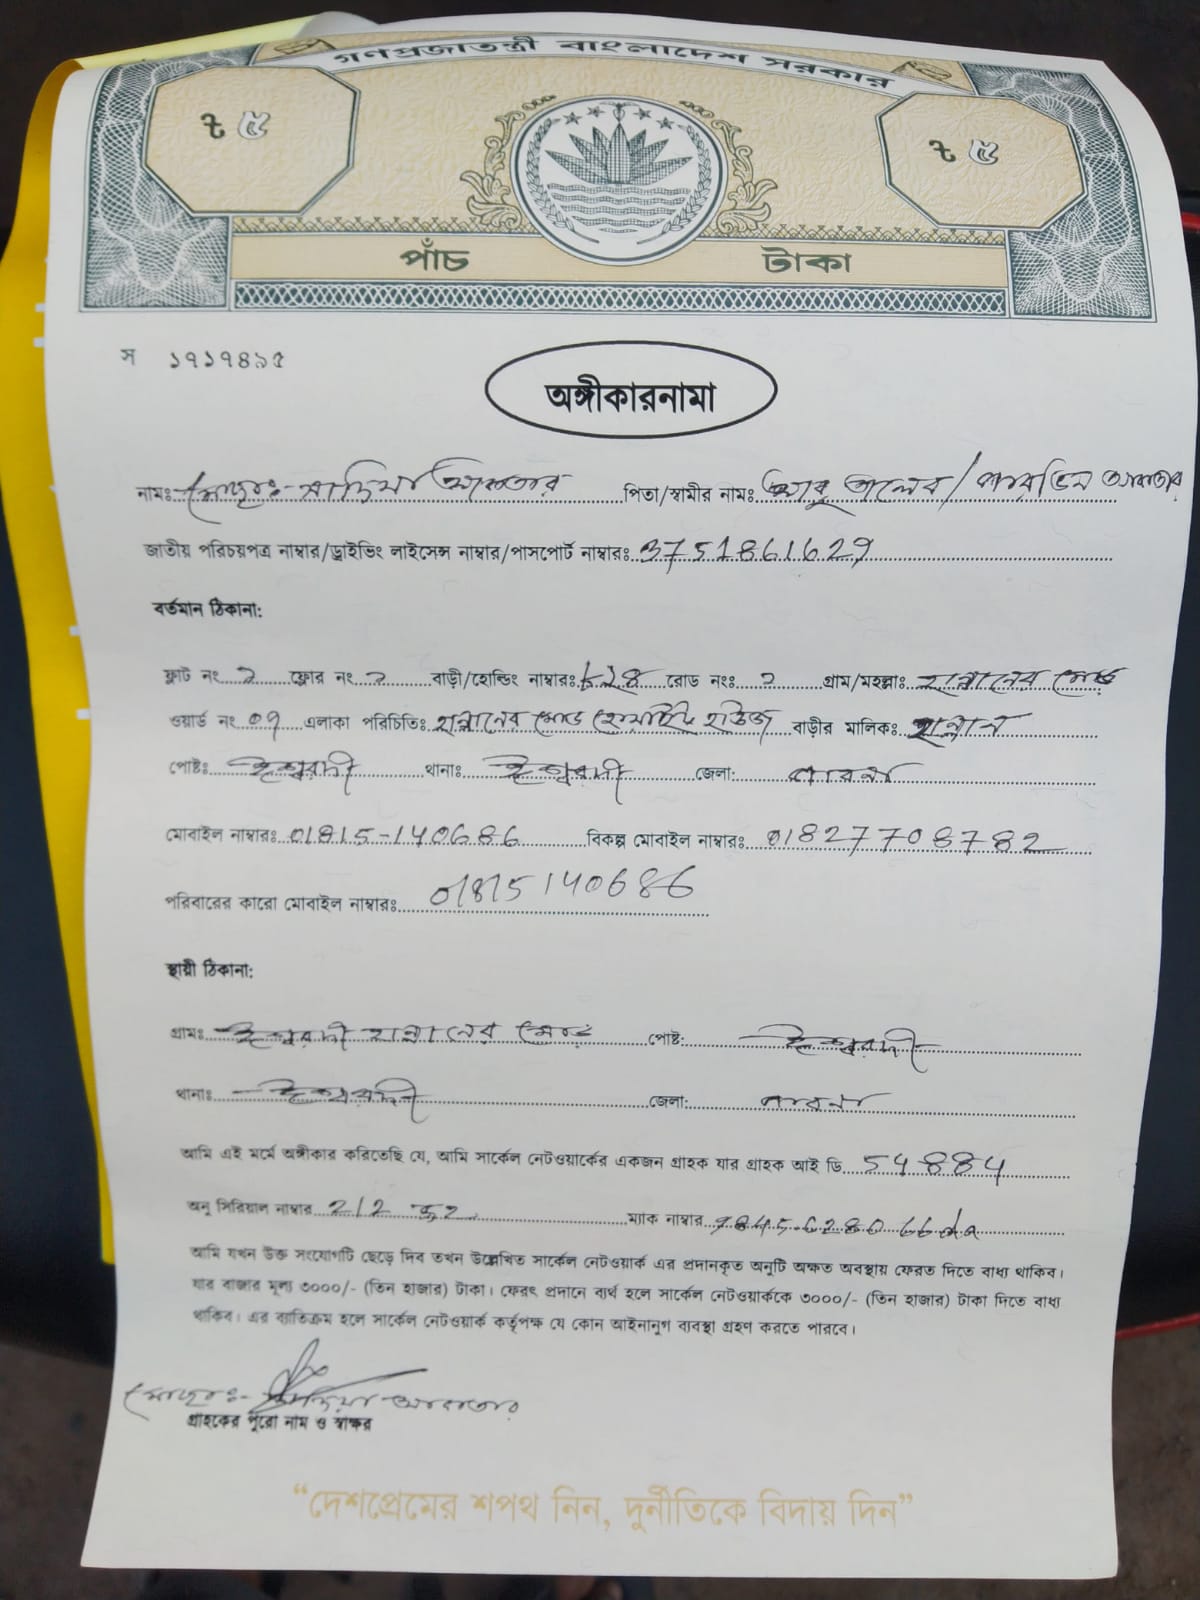 গণপ্রজাতন্ত্রী বাংলাদেশ সরকার
৳ ৫ ৳ ৫
পাঁচ টাকা
স ১৭১৭৪৯৫
অঙ্গীকারনামা
নামঃ মোছাঃ- সাদিয়া আক্তার পিতা/স্বামীর নামঃ আবু তালেব / পারভিন আক্তার
জাতীয় পরিচয়পত্র নাম্বার/ড্রাইভিং লাইসেন্স নাম্বার/পাসপোর্ট নাম্বারঃ 3751861629
বর্তমান ঠিকানা:
ফ্লাট নং ২ ফ্লোর নং ২ বাড়ী/হোল্ডিং নাম্বারঃ রোড নংঃ ২ গ্রাম/মহল্লাঃ হান্নানের মোড়
ওয়ার্ড নং ০৭ এলাকা পরিচিতিঃ হান্নানের মোড় বাড়ীর মালিকঃ হান্নান
পোষ্টঃ ঈশ্বরদী থানাঃ ঈশ্বরদী জেলা: পাবনা
মোবাইল নাম্বারঃ 01815-140686 বিকল্প মোবাইল নাম্বারঃ 01827708782
পরিবারের কারো মোবাইল নাম্বারঃ 01815140686
স্থায়ী ঠিকানা:
গ্রামঃ ঈশ্বরদী হান্নানের মোড় পোষ্ট: ঈশ্বরদী
থানাঃ ঈশ্বরদী জেলা: পাবনা
আমি এই মর্মে অঙ্গীকার করিতেছি যে, আমি সার্কেল নেটওয়ার্কের একজন গ্রাহক যার গ্রাহক আই ডি 54884
অনু সিরিয়াল নাম্বার 2/2 ম্যাক নাম্বার
আমি যখন উক্ত সংযোগটি ছেড়ে দিব তখন উল্লেখিত সার্কেল নেটওয়ার্ক এর প্রদানকৃত অনুটি অক্ষত অবস্থায় ফেরত দিতে বাধ্য থাকিব।
যার বাজার মূল্য ৩০০০/- (তিন হাজার) টাকা। ফেরৎ প্রদানে ব্যর্থ হলে সার্কেল নেটওয়ার্ককে ৩০০০/- (তিন হাজার) টাকা দিতে বাধ্য
থাকিব। এর ব্যতিক্রম হলে সার্কেল নেটওয়ার্ক কর্তৃপক্ষ যে কোন আইনানুগ ব্যবস্থা গ্রহণ করতে পারবে।
মোছাঃ- সাদিয়া আক্তার
গ্রাহকের পুরো নাম ও স্বাক্ষর
“দেশপ্রেমের শপথ নিন, দুর্নীতিকে বিদায় দিন”